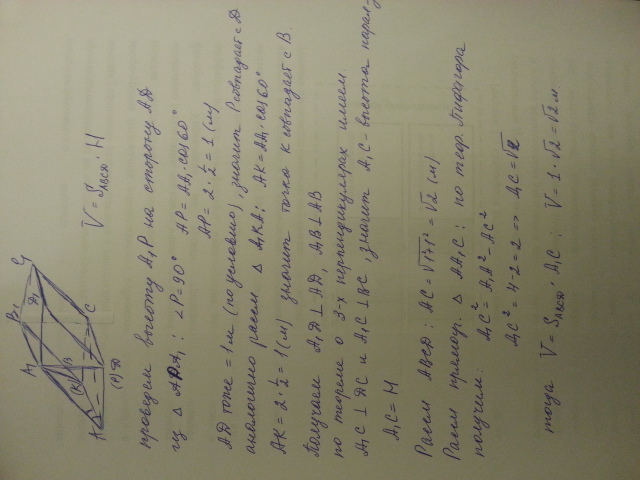 A₁ B₁ C₁ D₁
A (P) D (K) B C
V = S_ABCD · H
проведем высоту A₁P на сторону AD
из Δ APA₁ : ∠P=90° AP = AA₁·cos60°
AP = 2·½ = 1 (м)
AD тоже = 1м (по условию), значит P совпадает с D
аналогично рассм Δ A₁KA: AK = AA₁·cos60°
AK = 2·½ = 1(м) значит точка K совпадает с B.
Получаем A₁D⊥AD, A₁B⊥AB
по теореме о 3-х перпендикулярах имеем
A₁C⊥DC и A₁C⊥BC, значит A₁C - высота парал-
A₁C = H
Рассм ABCD : AC = √1²+1² = √2 (м)
Рассм прямоуг. Δ AA₁C : по теор. Пифагора
получим: A₁C² = A₁A² - AC²
A₁C² = 4-2 = 2 => A₁C = √2
тогда V = S_ABCD · A₁C : V = 1·√2 = √2 м